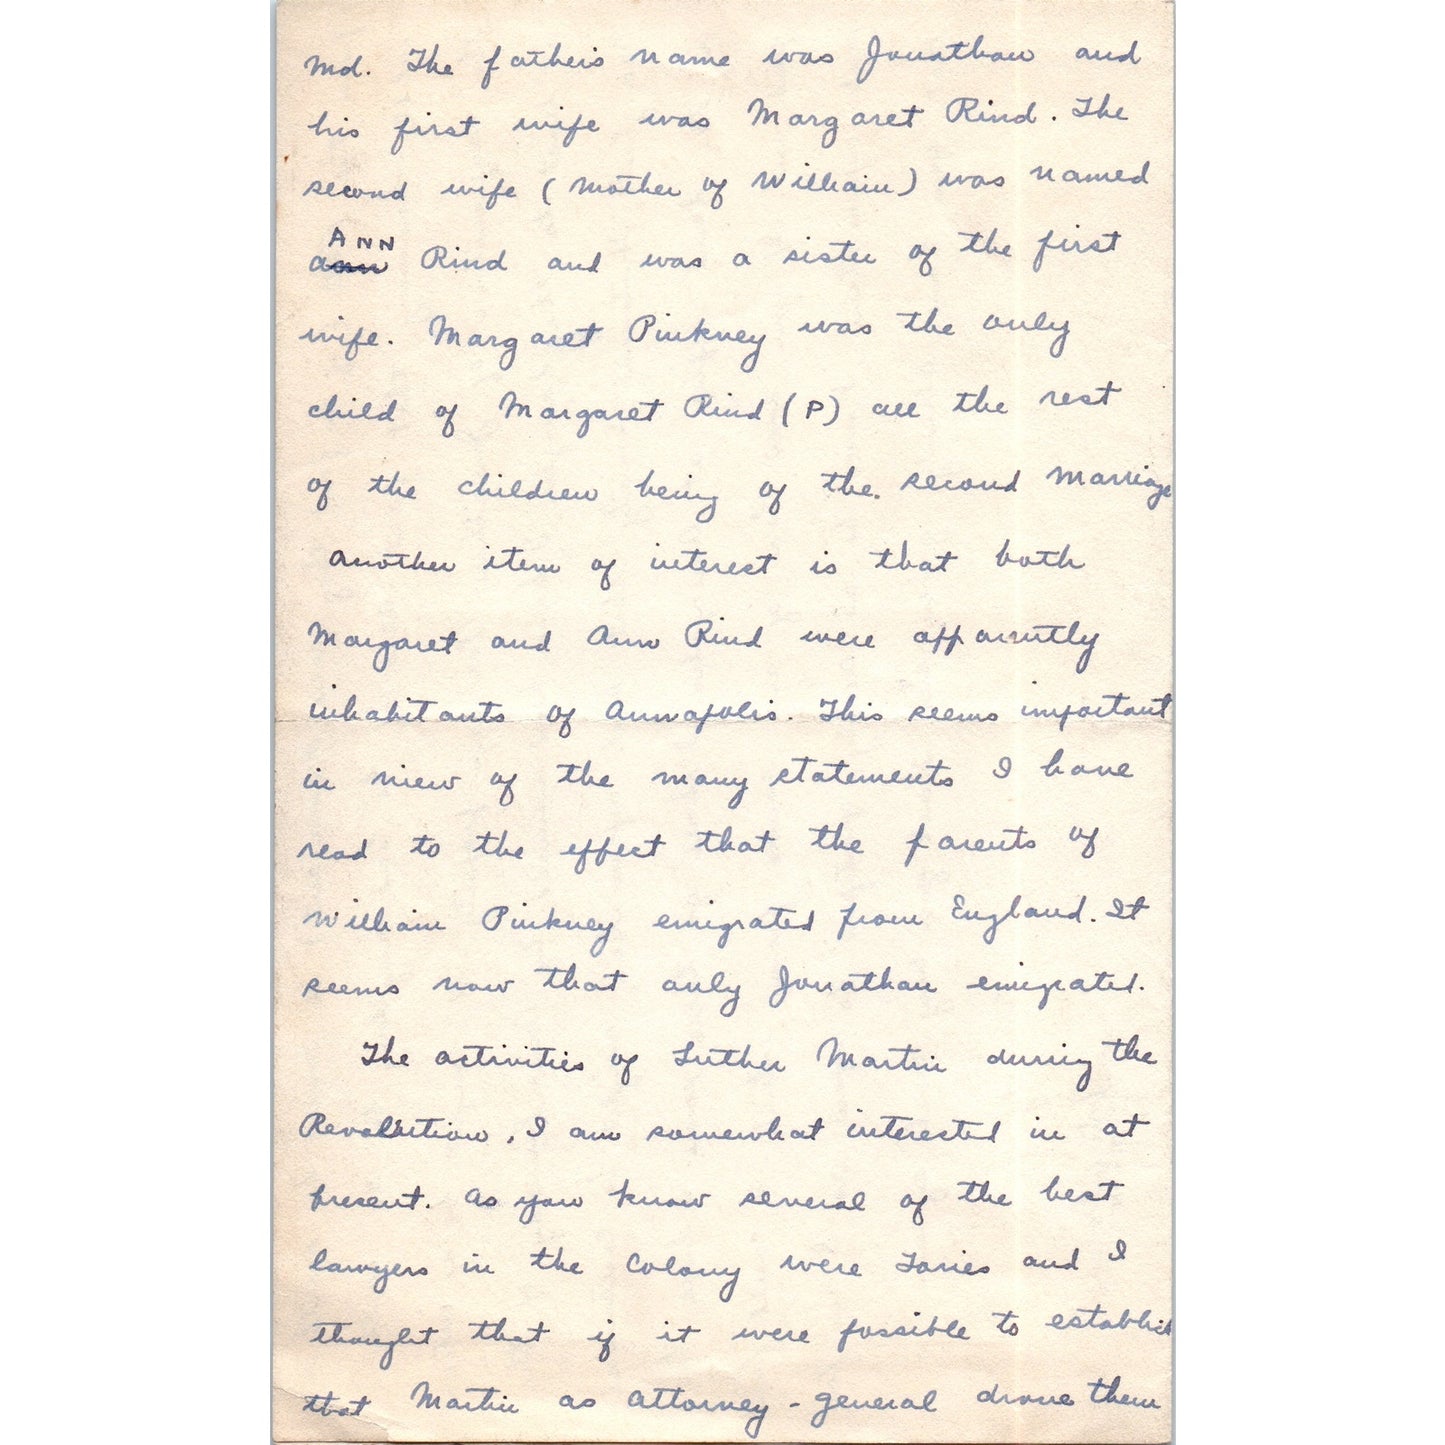 Md. The father's name was Jonathan and
his first wife was Margaret Rind. The
second wife (Mother of William) was named
ANN
Ann Rind and was a sister of the first
wife. Margaret Pinkney was the only
child of Margaret Rind (P) all the rest
of the children being of the. second Marriage
Another item of interest is that both
Margaret and Ann Rind were apparently
inhabitants of Annapolis. This seems important
in view of the many statements I have
read to the effect that the parents of
William Pinkney emigrated from England. It
seems now that only Jonathan emigrated.
The activities of Luther Martin during the
Revolution, I am somewhat interested in at
present. As you know several of the best
lawyers in the Colony were Tories and I
thought that if it were possible to establish
that Martin as Attorney-general drove them